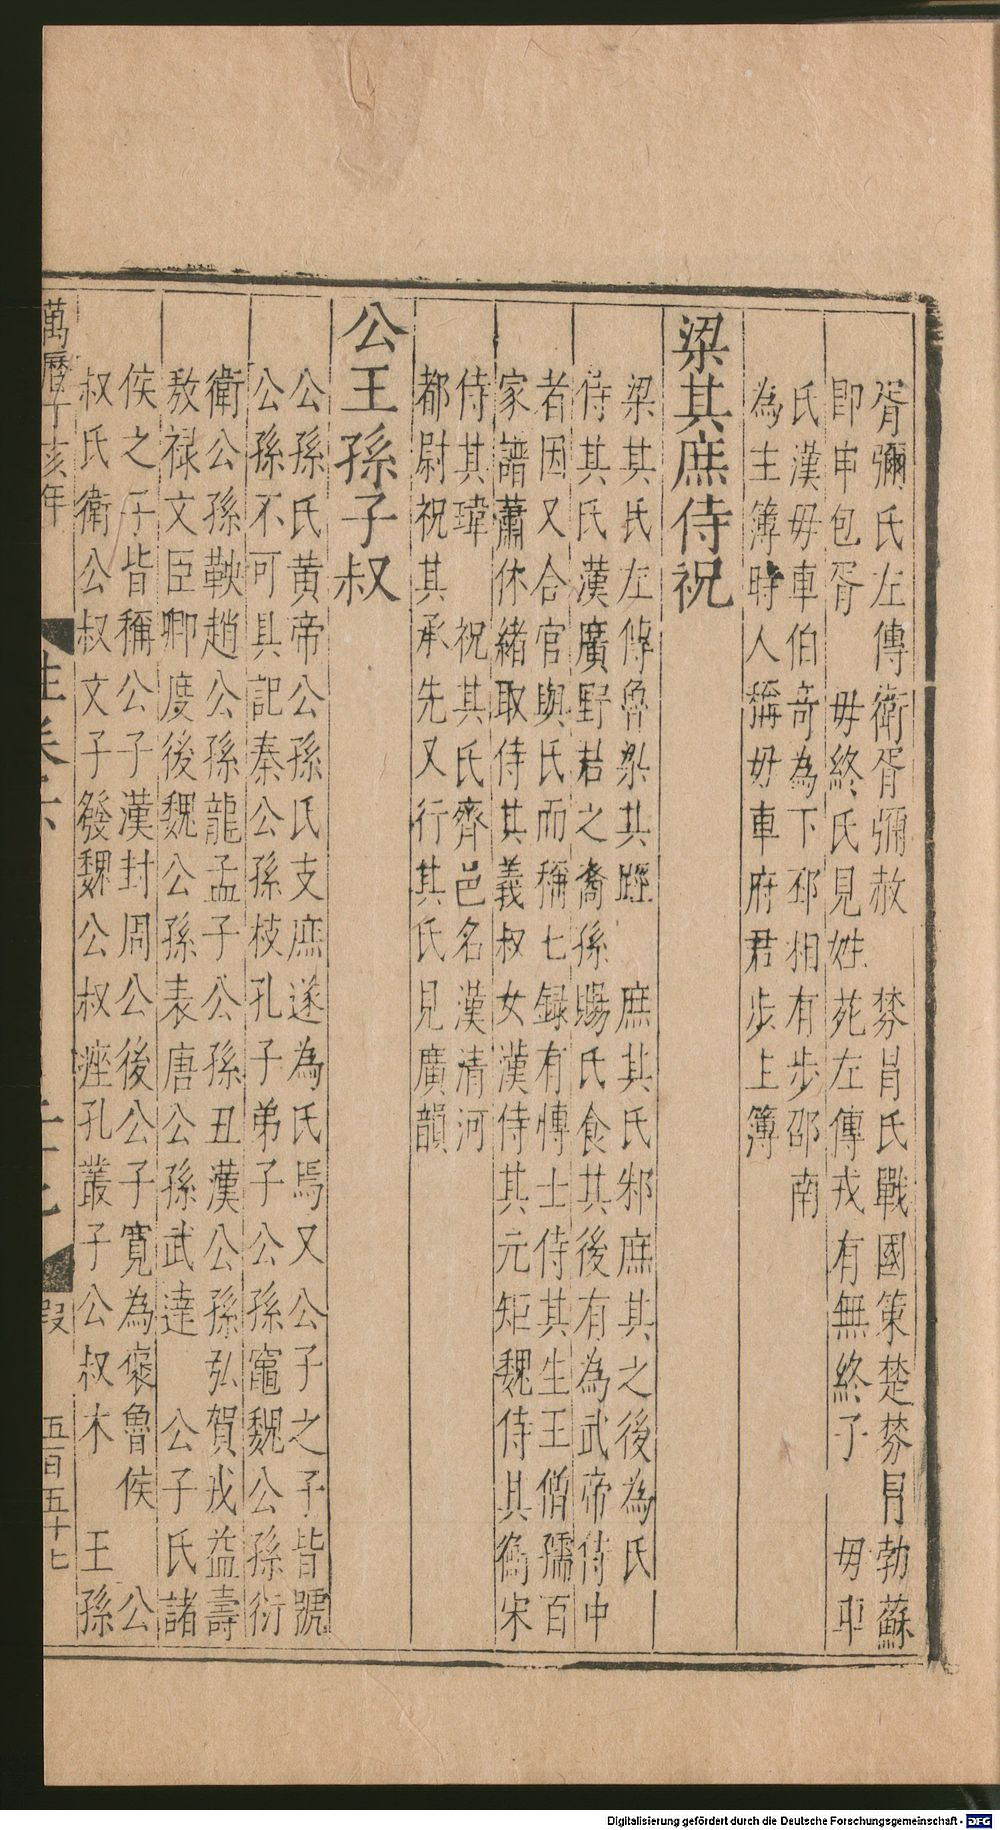 胥彌氏左傳衛胥彌赦　棼冐氏戰國策楚棼冐勃蘇
即申包胥　毋終氏見姓苑左傳戎有無終子　毋車
氏漢毋車伯奇為下邳相有步邵南
為主簿時人稱毋車府君步上簿
梁其庶侍祝
梁其氏左傳魯梁其踁　庶其氏邾庶其之後為氏
侍其氏漢廣野君之裔孫賜氏食其後有為武帝侍中
者因又合官與氏而稱七録有博士侍其生王僧孺百
家譜蕭休緒取侍其義叔女漢侍其元矩魏侍其衡宋
侍其瑋　祝其氏齊邑名漢清河
都尉祝其承先又行其氏見廣韻
公王孫子叔
公孫氏黄帝公孫氏支庶遂為氏焉又公子之子皆號
公孫不可具記秦公孫枝孔子弟子公孫竈魏公孫衍
衛公孫鞅趙公孫龍孟子公孫丑漢公孫弘賀戎益壽
敖禄文臣卿度後魏公孫表唐公孫武達　公子氏諸
侯之子皆稱公子漢封周公後公子寛為襃魯侯　公
叔氏衛公叔文子發魏公叔痤孔叢子公叔木　王孫
萬曆丁亥年
五百五十七
Digitalisierung gefördert durch die Deutsche Forschungsgemeinschaft - DFG